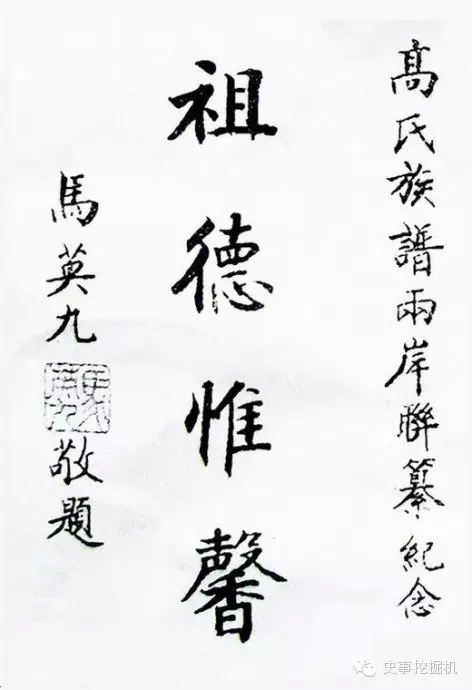 高氏族譜兩岸聯纂紀念
祖德惟馨
馬英九
敬題
史事挖掘机